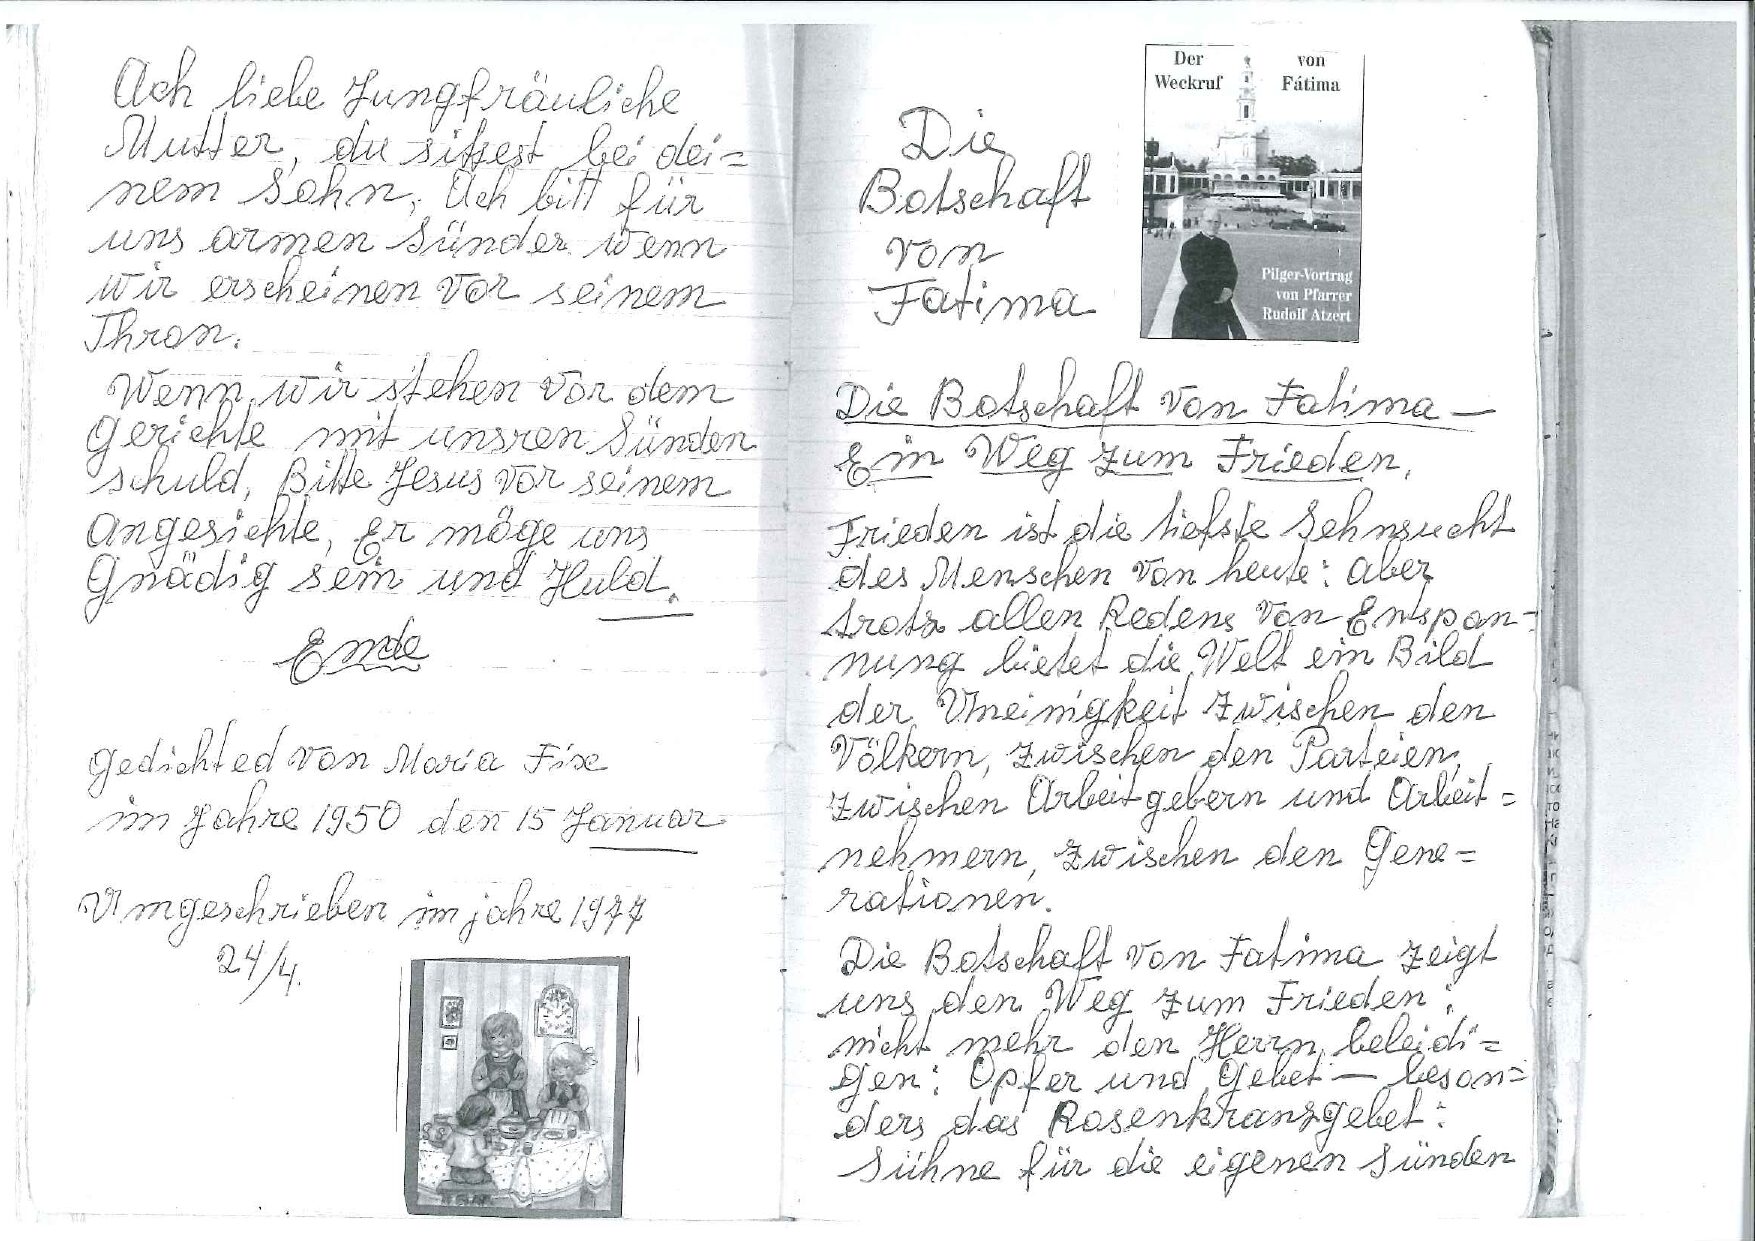 Ach liebe Jungfräuliche
Mutter, du sitzest bei dei=
nem Sohn, Ach bitt für
uns armen Sünder wenn
wir erscheinen vor seinem
Thron.
Wenn wir stehen vor dem
Gerichte mit unsren Sünden
schuld, Bitte Jesus vor seinem
Angesichte, Er möge uns
Gnädig sein und Huld.
Ende
Gedichted von Maria Fix
im Jahre 1950 den 15 Januar
Umgeschrieben im jahre 1977
24/4.
Die
Botschaft
von
Fatima
Der Weckruf von Fátima
Pilger-Vortrag
von Pfarrer
Rudolf Atzert
Die Botschaft von Fatima —
Ein Weg zum Frieden.
Frieden ist die tiefste Sehnsucht
des Menschen von heute: aber
trotz allen Redens von Entspan=
nung bietet die Welt ein Bild
der Uneinigkeit zwischen den
Völkern, zwischen den Parteien,
zwischen Arbeitgebern und Arbeit=
nehmern, zwischen den Gene=
rationen.
Die Botschaft von Fatima zeigt
uns den Weg zum Frieden:
nicht mehr den Herrn beleidi=
gen: Opfer und Gebet — beson=
ders das Rosenkranzgebet:
Sühne für die eigenen Sünden